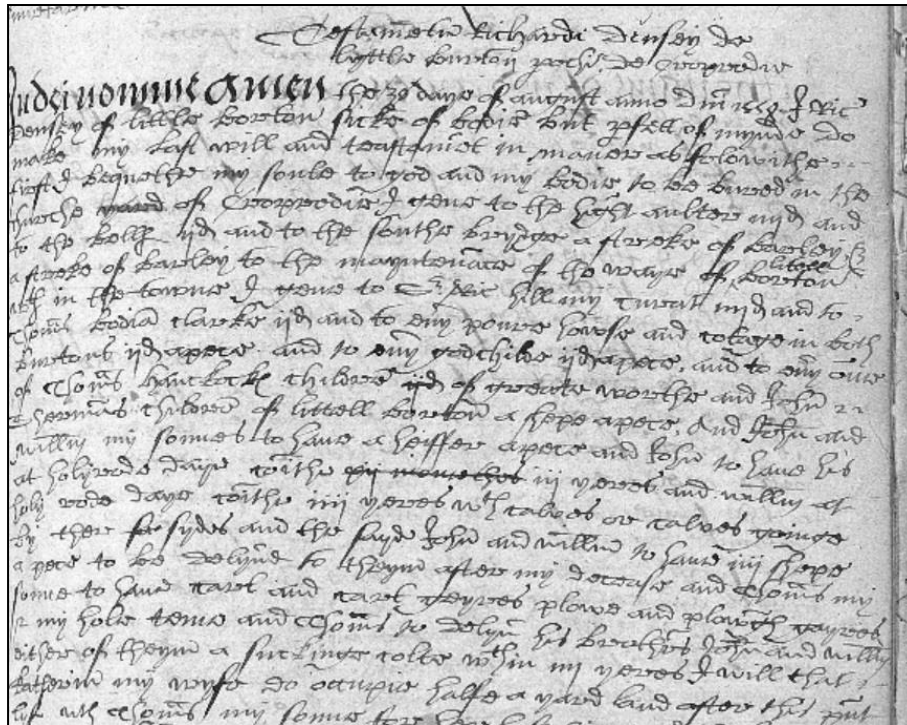 Testamentu Richardi Densey de
lyttle burton pochi de Cropredie
In dei nomine amen the 20 daye of august anno dni I Ric
Densey of little borton sicke of bodie but pfett of mynde do
make my last will and testamet in maner as folowithe
first I bequethe my soule to god and my bodie to be buried in the
churche yard of Cropredie I geve to the highe aulter iiijd and
to the bells ijd and to the southe brydge a stroke of barley &
a stroke of barley to the mayntenace of the waye of litell borton
in the towne I geve to Sr Ric hill my curat iiijd and to
Thoms bodia clarke ijd and to evy powre howse and cotage in both
burtons ijd apece and to evy godchilde ijd apece, and to evy one
of Thoms hanckocks children ijd of greate worthe and John
Shermas children of littell borton a shepe apece, And John and
willm my sonnes to have a heiffer apece and John to have his
at holyrode daye cõithe xij monethes iij yeres and willm at
holy rode daye cõithe iiij yeres wth calves or calves goinge
by ther sydes and the sayd John and willm to have iiij shepe
apece to be delyvd to theym after my decease and Thoms my
sonne to have cart and cart geyres plowe and plowgh gayres
my hole teme and Thoms to delyv his brothers John and willm
either of theym a suckinge colte wthin iij yeres I will that
katherin my wyfe do occupie halfe a yard land after this pnt
lyf wth Thoms my sonne for